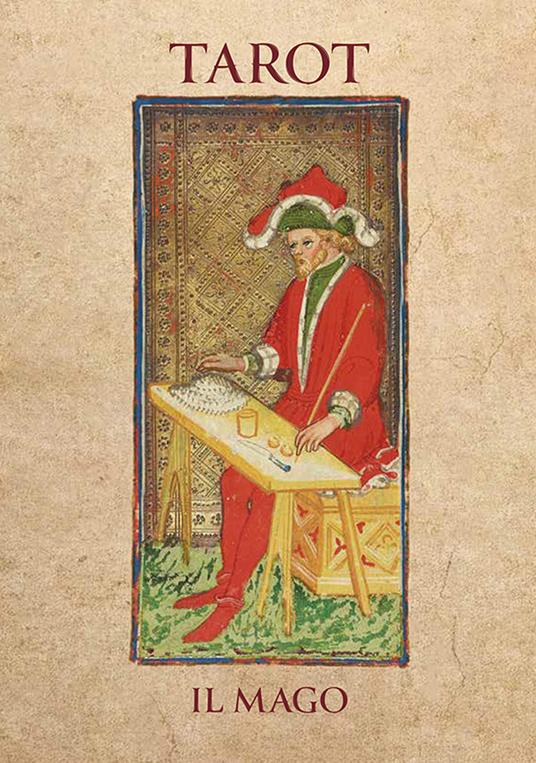 TAROT
IL MAGO